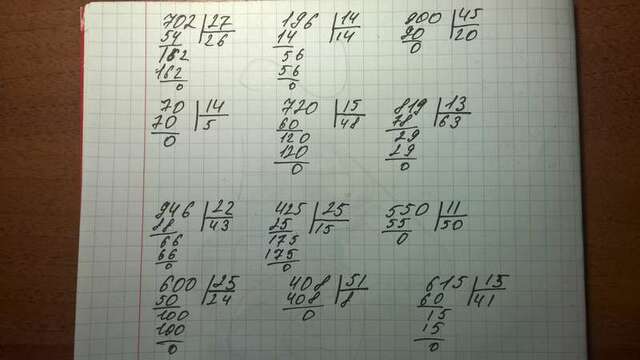 702 27 196 14 900 45
54 26 14 14 90 20
162 56 0
162 56
0 0
70 14 720 15 819 13
70 5 60 48 78 63
0 120 29
120 29
0 0
946 22 425 25 550 11
88 43 25 15 55 50
66 175 0
66 175
0 0
600 25 408 51 615 15
50 24 408 8 60 41
100 0 15
100 15
0 0